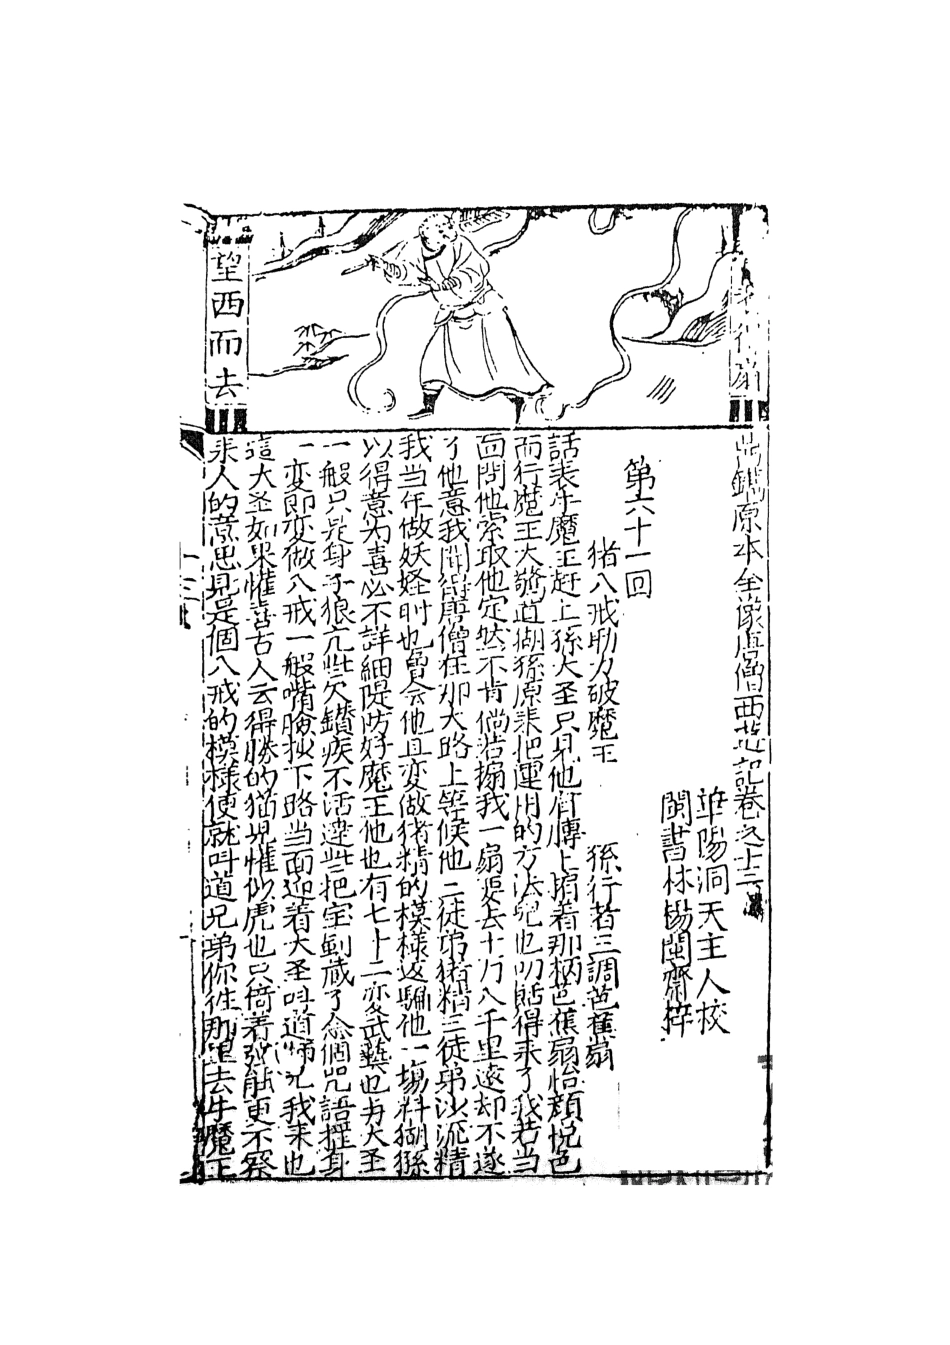 行者
望西而去
鼎鐫原本全像唐僧西遊記卷之十三
華陽洞天主人校
閩書林楊閩齋梓
第六十一回
猪八戒助力破魔王　孫行者三調芭蕉扇
話表牛魔王赶上孫大圣只見他肩膊上掮着那柄芭蕉扇怡顔悅色
而行魔王大驚道猢猻原來把運用的方法兒也叨餂得來了我若当
面問他索取他定然不肯倘若搧我一扇要去十万八千里遠却不遂
了他意我聞得唐僧在那大路上等候他二徒弟猪精三徒弟沙流精
我当年做妖怪时也曾会他且变做猪精的模樣返騙他一場料猢猻
以得意为喜必不詳細隄防好魔王他也有七十二变武藝也与大圣
一般只是身子狼亢些欠鑽疾不活達些把宝劍藏了念個咒語揺身
一变即变做八戒一般嘴臉抄下路当面迎着大圣叫道师兄我来也
這大圣如果懽喜古人云得勝的猫兒懽似虎也只倚着强能更不察
来人的意思見是個八戒的模樣便就叫道兄弟你往那里去牛魔王